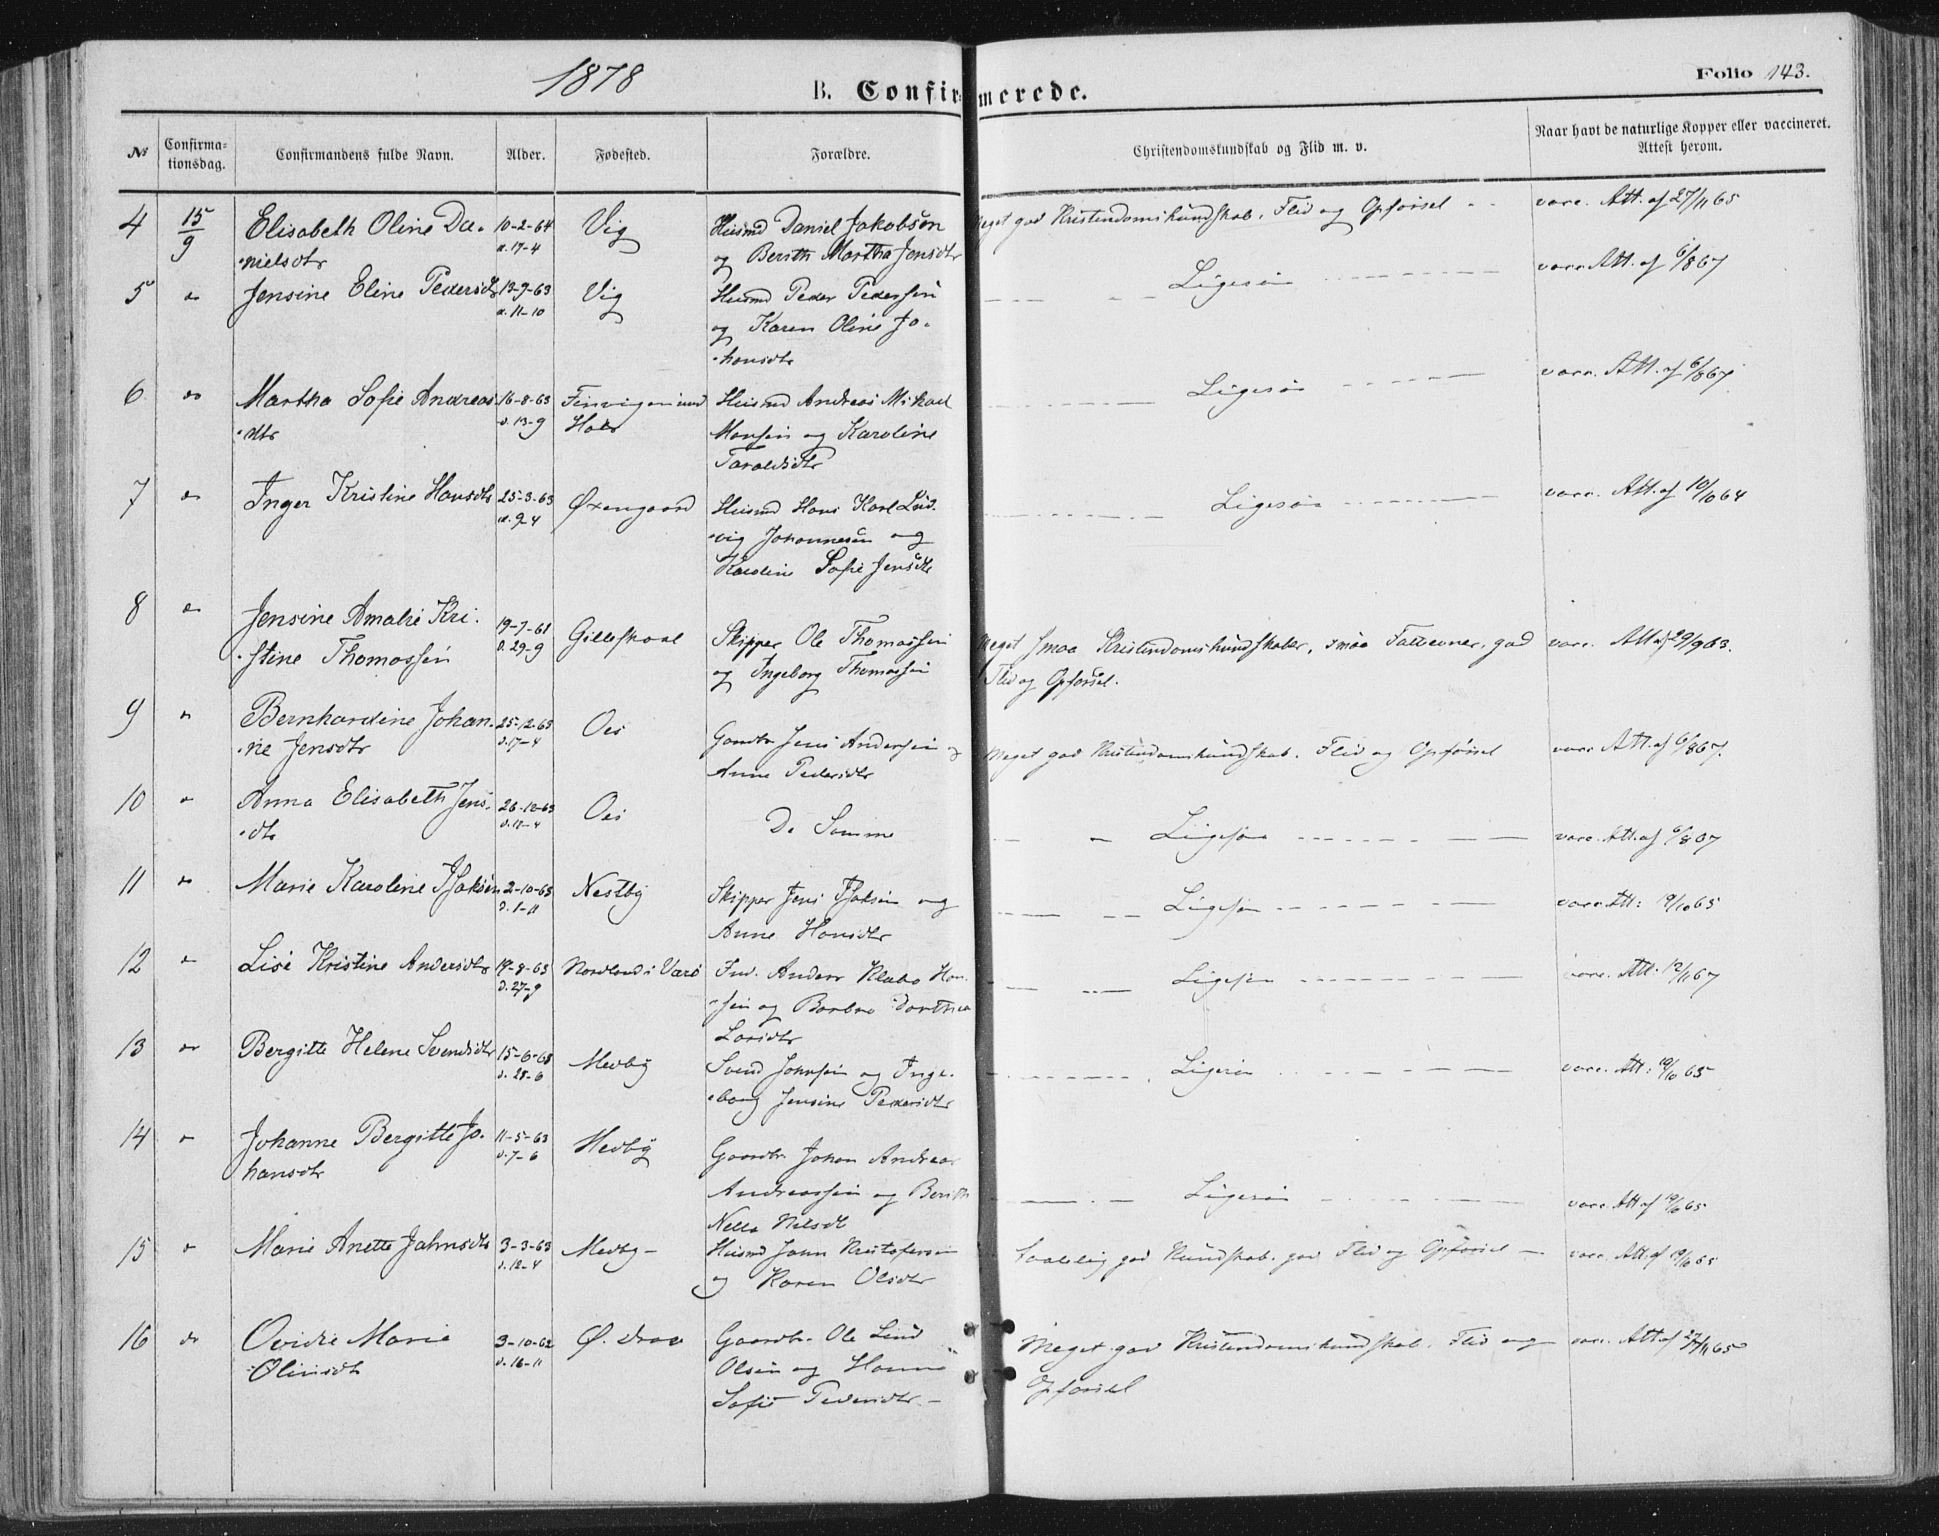 1878
B. Confirmerede.
Folio 143.
№ Confirmationsdag. Confirmandens fulde Navn. Alder. Fødested. Forældre. Christendomskundskab og Flid m. v. Naar havt de naturlige Kopper eller vaccineret. Attest herom.
4 15/9 Elisabeth Oline Da- 10-2-64 Vig Husmd Daniel Jakobsen Meget god Kristendomskundskab, Flid og Opførsel - - vacc. Att. af 27/11 65
-nielsdtr d. 17-4 og Berith Martha Jensdtr
5 do Jensine Eline Pedersdtr 13-9-63 Vig Husmd Peder Pedersen Ligesaa vacc. Att. af 6/8 67
d. 11-10 og Karen Oline Jo-
-hansdtr
6 do Martha Sofie Andreas- 16-8-63 Husmd Andreas Mikael Ligesaa vacc. Att. af 6/8 67
-dtr d. 13-9 Monsen og Karoline
Taraldsdtr
7 do Inger Kristine Hansdtr 25-3-63 Øxengaard Husmd Hans Karl Lud- Ligesaa vacc. Att. af 10/10 64
d. 9-4 -vig Johannesen og
Karoline Sofie Jensdtr
8 do Jensine Amalie Kri- 19-7-61 Gilleskaal Skipper Ole Thomassen Meget smaa Kristendomskundskaber, smaa Fatteevner, god vacc. Att. af 29/9 63.
-stine Thomassen d. 29-9 og Ingeborg Thomassen Flid og Opførsel.
9 do Bernhardine Johan- 25-12-63 Oes Gaardbr Jens Andersen og Meget god Kristendomskundskab, Flid og Opførsel vacc. Att. af 6/8 67.
-ne Jensdtr d. 17-4 Anne Pedersdtr
10 do Anna Elisabeth Jens- 26-12-63 Oes De Samme Ligesaa vacc. Att. af 6/8 67
-dtr d. 17-4
11 do Marie Karoline Isaksen 2-10-63 Nestby Skipper Jens Isaksen og Ligesaa vacc. Att: 19/10 65
d. 1-11 Anne Hansdtr
12 do Lise Kristine Andersdtr 19-8-63 Anders Klabo Han- Ligesaa vacc. Att: 12/11 67
d. 27-9 -sen og Barbro Dorthea
Larsdtr
13 do Bergitte Helene Svendsdtr 15-6-63 Medby Svend Johnsen og Inge- Ligesaa vacc. Att: 19/10 65
d. 28-6 -borg Jensine Pedersdtr
14 do Johanne Bergitte Jo- 11-5-63 Medby Gaardbr. Johan Andreas
hansdtr d. 7-6 Andreassen og Berith Ligesaa vacc. Att af 19/10 65
Nella Nilsdt
15 do Marie Anette Jahnsdtr 3-3-63 Medby - Husmd Jahn Kristofersen Saalelig god Kundskab, god Flid og Opførsel - vacc. Att. af 19/10 65
d. 12-4 og Karen Olsdtr
16 do Ovidie Marie 3-10-62 Gaardbr. Ole Lind Meget god Kristendomskundskab, Flid og vacc. Att af 27/11 65
Olinsdt d. 16-11 Olsen og Hanna Opførsel
Sofie Pedersdtr. -